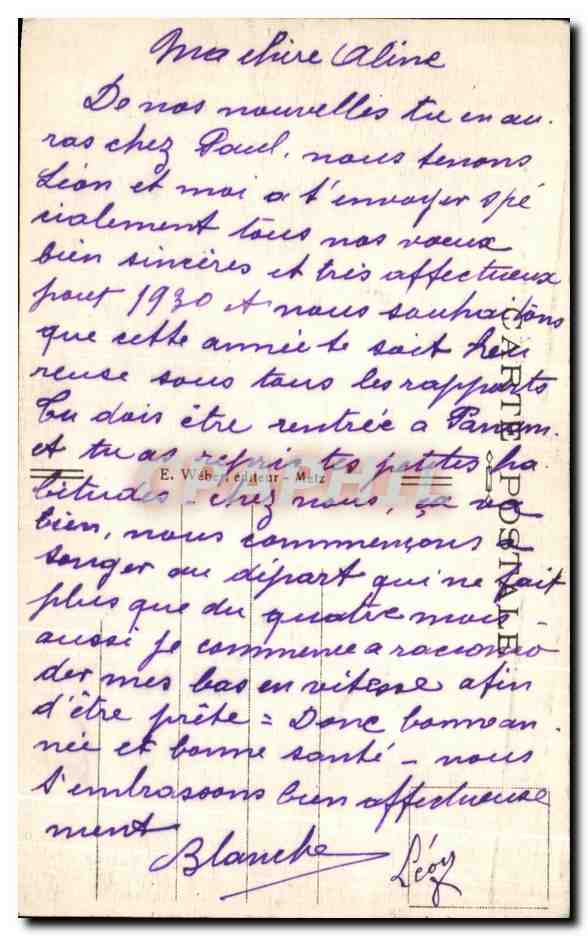 Ma chère Aline
De nos nouvelles tu en au-
ras chez Paul. nous tenons
Léon et moi a t'envoyer spé
cialement tous nos vœux
bien sincères et très affectueux
pour 1930 et nous souhaitons
que cette année te soit heu
reuse sous tous les rapports
Tu dois être rentrée a Panam.
et tu as repris tes petites ha
E. Weber, éditeur - Metz
bitudes - chez nous, ça va
bien, nous commençons a
songer au départ qui ne fait
plus que du quatre mois -
aussi je commence a raccomo
der mes bas en vitesse afin
d'être prête = Donc bonne an-
née et bonne santé - nous
t'embrassons bien affectueuse
ment
Blanche
Léon
CARTE POSTALE
CPAPHIL